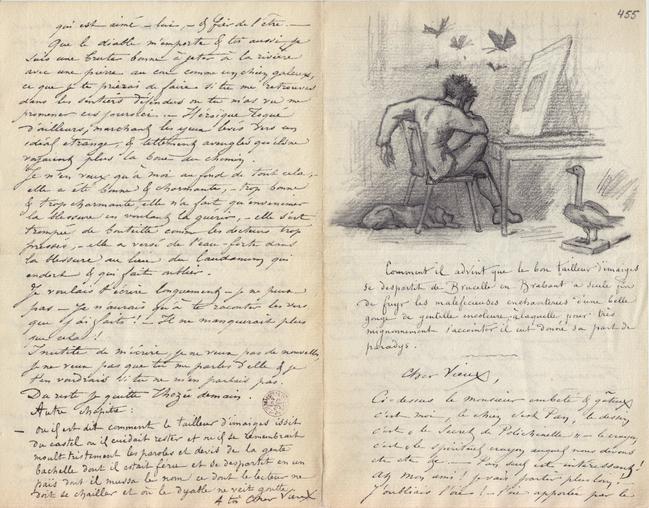 qui est aimé – lui, – & fier de l'être. –
Que le diable m'emporte & toi aussi je
suis une bonne à jeter à la rivière
avec une pierre au cou comme un chien galeux,
ce que je te prierai de faire si tu me retrouves
dans les sentiers défendus où tu m'as vu me
promener ces jours-ci. – Héroïque toqué
d'ailleurs, marchant les yeux levés vers un
idéal étrange, & tellement aveugles qu'ils ne
voyaient plus la boue du chemin.
Je n'en veux qu'à moi au fond de tout cela;
elle a été bonne & charmante, – trop bonne
& trop charmante, elle n'a fait qu'envenimer
la blessure en voulant la guérir, – elle s'est
trompée de bouteille comme les docteurs trop
pressés, – elle a versé de l'eau-forte dans
la blessure au lieu du laudanum qui
endort & qui fait oublier.
Je voulais t'écrire longuement – je ne puis
pas – Je n'aurais qu'à te raconter les vers
que j'ai faits! – Il ne manquerait plus
que cela!
Inutile de m'écrire, je ne veux pas de nouvelles,
je ne veux pas que tu me parles d'elle & je
t'en voudrais si tu ne m'en parlais pas.
Du reste je quitte Thozée demain.
Autre Chapitre:
– où il est dit comment le tailleur d'imaiges issit
du castel où il cuidait rester et se remembrait
moult tristement les paroles et devis de la gente
bachelle dont il estait féru et se despartit en un
païs dont il mussa le nom ce dont le lecteur ne
doit se chailler et où le dyable ne veit goutte.
à toi Cher Vieux
455
Comment il advint que le bon tailleur d'imaiges
se despartit de Bruxelle en Brabant a seule fin
de fuyr les maleficieuses enchanteries d'une belle
gouge de gentille encolure à laquelle pour très
mignonnement s'accointer il eut donné sa part de
paradys.
Cher Vieux,
Ci-dessus le monsieur embêté & gâteux
c'est moi, le chien c'est Pan, le dessin
c'est « le Secret de Polichinelle » – le crayon
c'est le spirituel crayon auquel nous devons
etc etc etc – Pan seul est intéressant!
Ah mon ami! J'vais parler plus long,
J'oubliais l'oie! – l'oie apportée par le